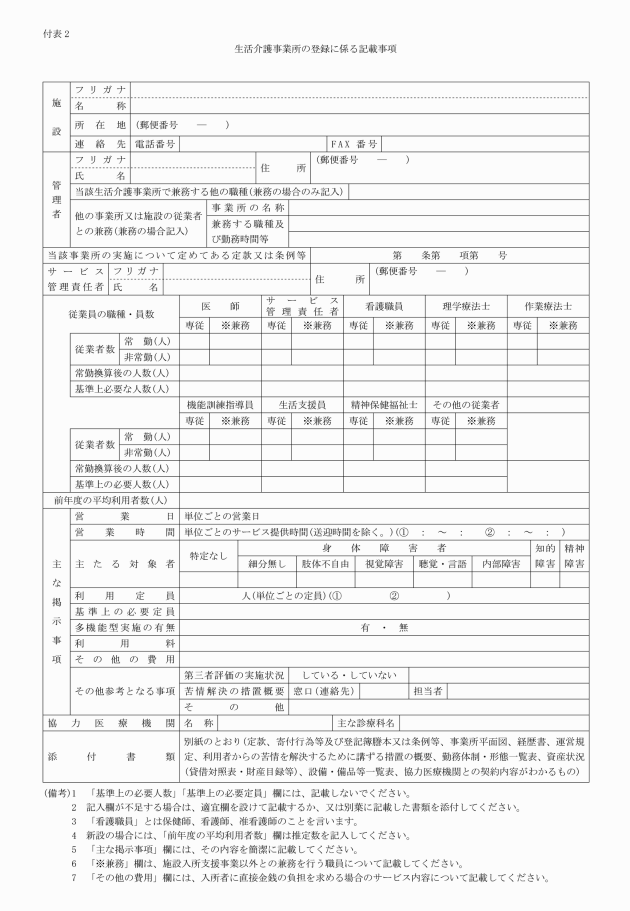 付表２
生活介護事業所の登録に係る記載事項
施設
フリガナ
名称
所在地 (郵便番号 ― )
連絡先 電話番号 FAX番号
管理者
フリガナ
氏名
住所 (郵便番号 ― )
当該生活介護事業所で兼務する他の職種(兼務の場合のみ記入)
他の事業所又は施設の従業者との兼務(兼務の場合記入)
事業所の名称
兼務する職種及び勤務時間等
当該事業所の実施について定めてある定款又は条例等 第 条第 項第 号
サービス管理責任者
フリガナ
氏名
住所 (郵便番号 ― )
従業員の職種・員数 医師 サービス管理責任者 看護職員 理学療法士 作業療法士
専従 ※兼務 専従 ※兼務 専従 ※兼務 専従 ※兼務 専従 ※兼務
従業者数 常勤(人)
非常勤(人)
常勤換算後の人数(人)
基準上必要な人数(人)
機能訓練指導員 生活支援員 精神保健福祉士 その他の従業者
専従 ※兼務 専従 ※兼務 専従 ※兼務 専従 ※兼務
従業者数 常勤(人)
非常勤(人)
常勤換算後の人数(人)
基準上の必要人数(人)
前年度の平均利用者数(人)
主な掲示事項
営業日 単位ごとの営業日
営業時間 単位ごとのサービス提供時間(送迎時間を除く。)(① ： ～ ： ② ： ～ ： )
主たる対象者 特定なし 身体障害者 知的障害 精神障害
細分無し 肢体不自由 視覚障害 聴覚・言語 内部障害
利用定員 人(単位ごとの定員)(① ② )
基準上の必要定員
多機能型実施の有無 有・無
利用料
その他の費用
その他参考となる事項
第三者評価の実施状況 している・していない
苦情解決の措置概要 窓口(連絡先) 担当者
その他
協力医療機関 名称 主な診療科名
添付書類
別紙のとおり(定款、寄付行為等及び登記簿謄本又は条例等、事業所平面図、経歴書、運営規
定、利用者からの苦情を解決するために講ずる措置の概要、勤務体制・形態一覧表、資産状況
(貸借対照表・財産目録等)、設備・備品等一覧表、協力医療機関との契約内容がわかるもの)
(備考)1 「基準上の必要人数」「基準上の必要定員」欄には、記載しないでください。
2 記入欄が不足する場合は、適宜欄を設けて記載するか、又は別葉に記載した書類を添付してください。
3 「看護職員」とは保健師、看護師、准看護師のことを言います。
4 新設の場合には、「前年度の平均利用者数」欄は推定数を記入してください。
5 「主な掲示事項」欄には、その内容を簡潔に記載してください。
6 「※兼務」欄は、施設入所支援事業以外との兼務を行う職員について記載してください。
7 「その他の費用」欄には、入所者に直接金銭の負担を求める場合のサービス内容について記載してください。